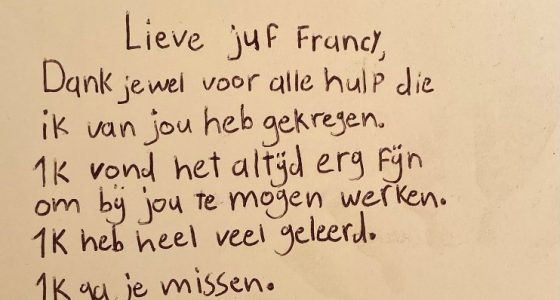 Lieve juf Francy,
Dank jewel voor alle hulp die
ik van jou heb gekregen.
Ik vond het altijd erg fijn
om bij jou te mogen werken.
Ik heb heel veel geleerd.
Ik ga je missen.